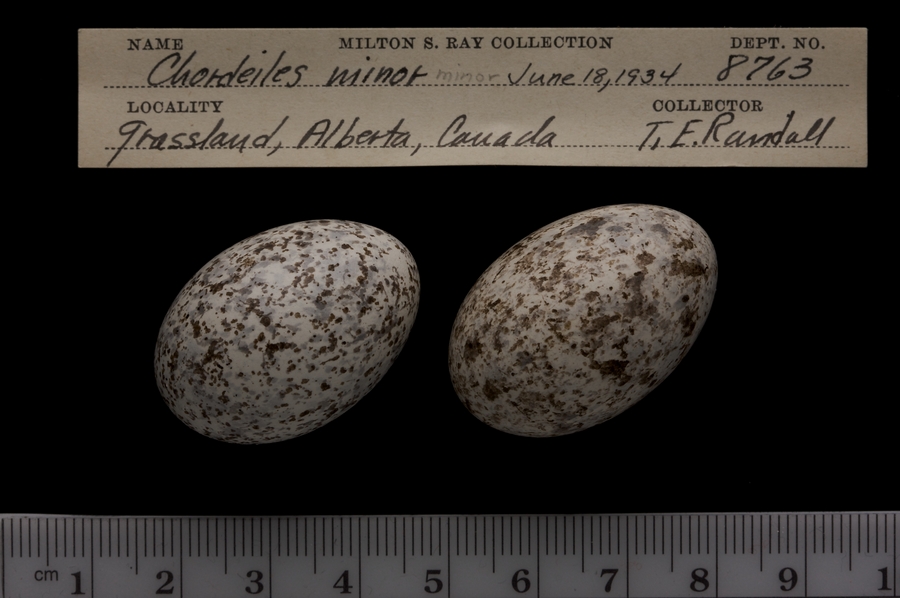 NAME MILTON S. RAY COLLECTION DEPT. NO.
Chordeiles minor minor June 18, 1934 8763
LOCALITY COLLECTOR
Grassland, Alberta, Canada T. E. Randall
cm 1 2 3 4 5 6 7 8 9 1